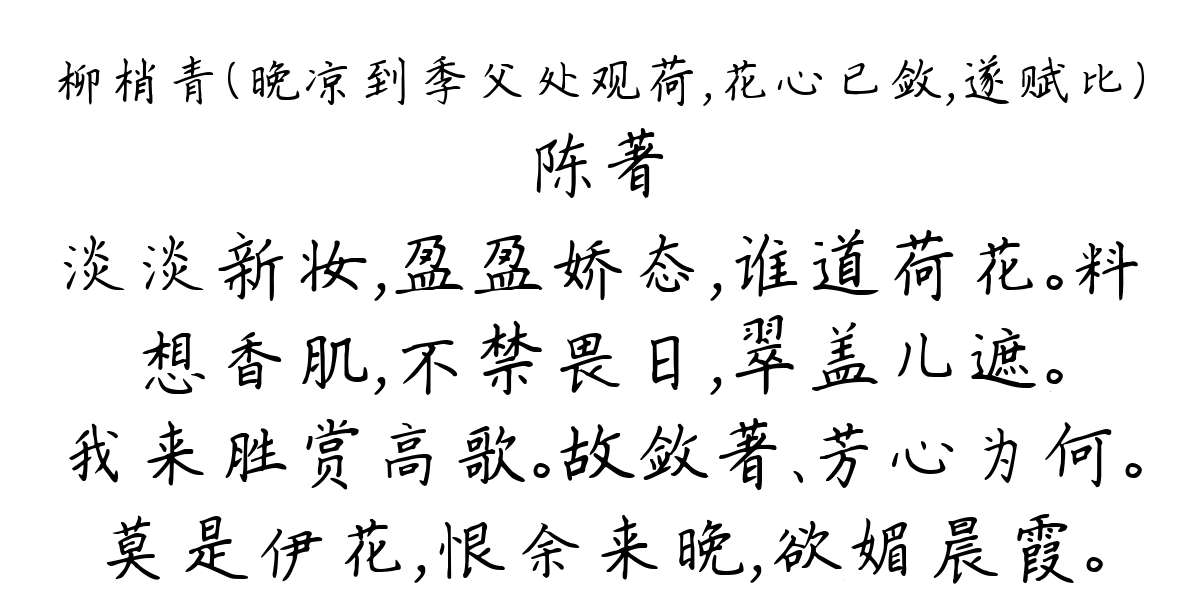 柳梢青(晚凉到季父处观荷,花心已敛,遂赋比)
陈著
淡淡新妆,盈盈娇态,谁道荷花。料
想香肌,不禁畏日,翠盖儿遮。
我来胜赏高歌。故敛著、芳心为何。
莫是伊花,恨余来晚,欲媚晨霞。